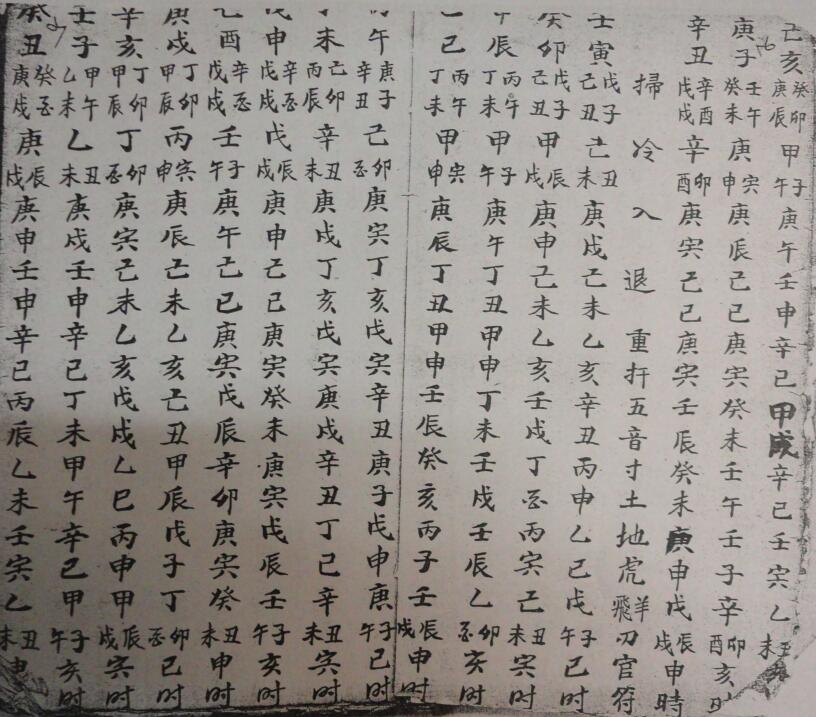 己亥癸卯庚辰甲子午庚午壬申辛巳甲戌辛巳壬寅乙丑未
庚子壬午癸未庚寅申庚辰己巳庚寅癸未壬午壬子辛卯酉亥时
辛丑辛酉戊戌辛卯酉庚寅己巳庚寅壬辰癸未庚申戊辰戌申時
掃冷入退重扦五音寸土地虎羊飛刃官符
壬寅戊子己丑己丑未庚戌己未乙亥辛丑丙申乙巳戊子午巳时
癸卯戊子己丑甲辰戌庚申己未乙亥壬戌丁酉丙寅己丑未寅时
辰丙午丁未甲子午庚午丁丑甲申丁未壬戌壬辰乙卯酉亥时
巳丙午丁未甲寅申庚辰丁丑甲申壬辰癸亥丙子壬辰戌申时
午庚子辛丑己卯酉庚寅丁亥戊寅辛丑庚子戊申庚子午巳时
未己卯丙辰辛丑未庚戌丁亥戊寅庚戌辛丑丁巳辛丑未寅时
戊申辛酉戊戌戊辰戌庚申己巳庚寅癸未庚寅戊辰壬子午亥时
己酉辛酉戊戌壬子午庚午己巳庚寅戊辰辛卯庚寅癸丑未申时
庚戌丁卯甲辰丙寅申庚辰己未乙亥己丑甲辰戊子丁卯酉巳时
辛亥丁卯甲辰丁卯酉庚寅己未乙亥戊戌乙巳丙申甲辰戌寅时
壬子甲午乙未乙丑未庚戌壬申辛巳丁未甲午辛巳甲子午亥时
癸丑癸酉庚戌庚辰戌庚申壬申辛巳丙辰乙未壬寅乙丑未